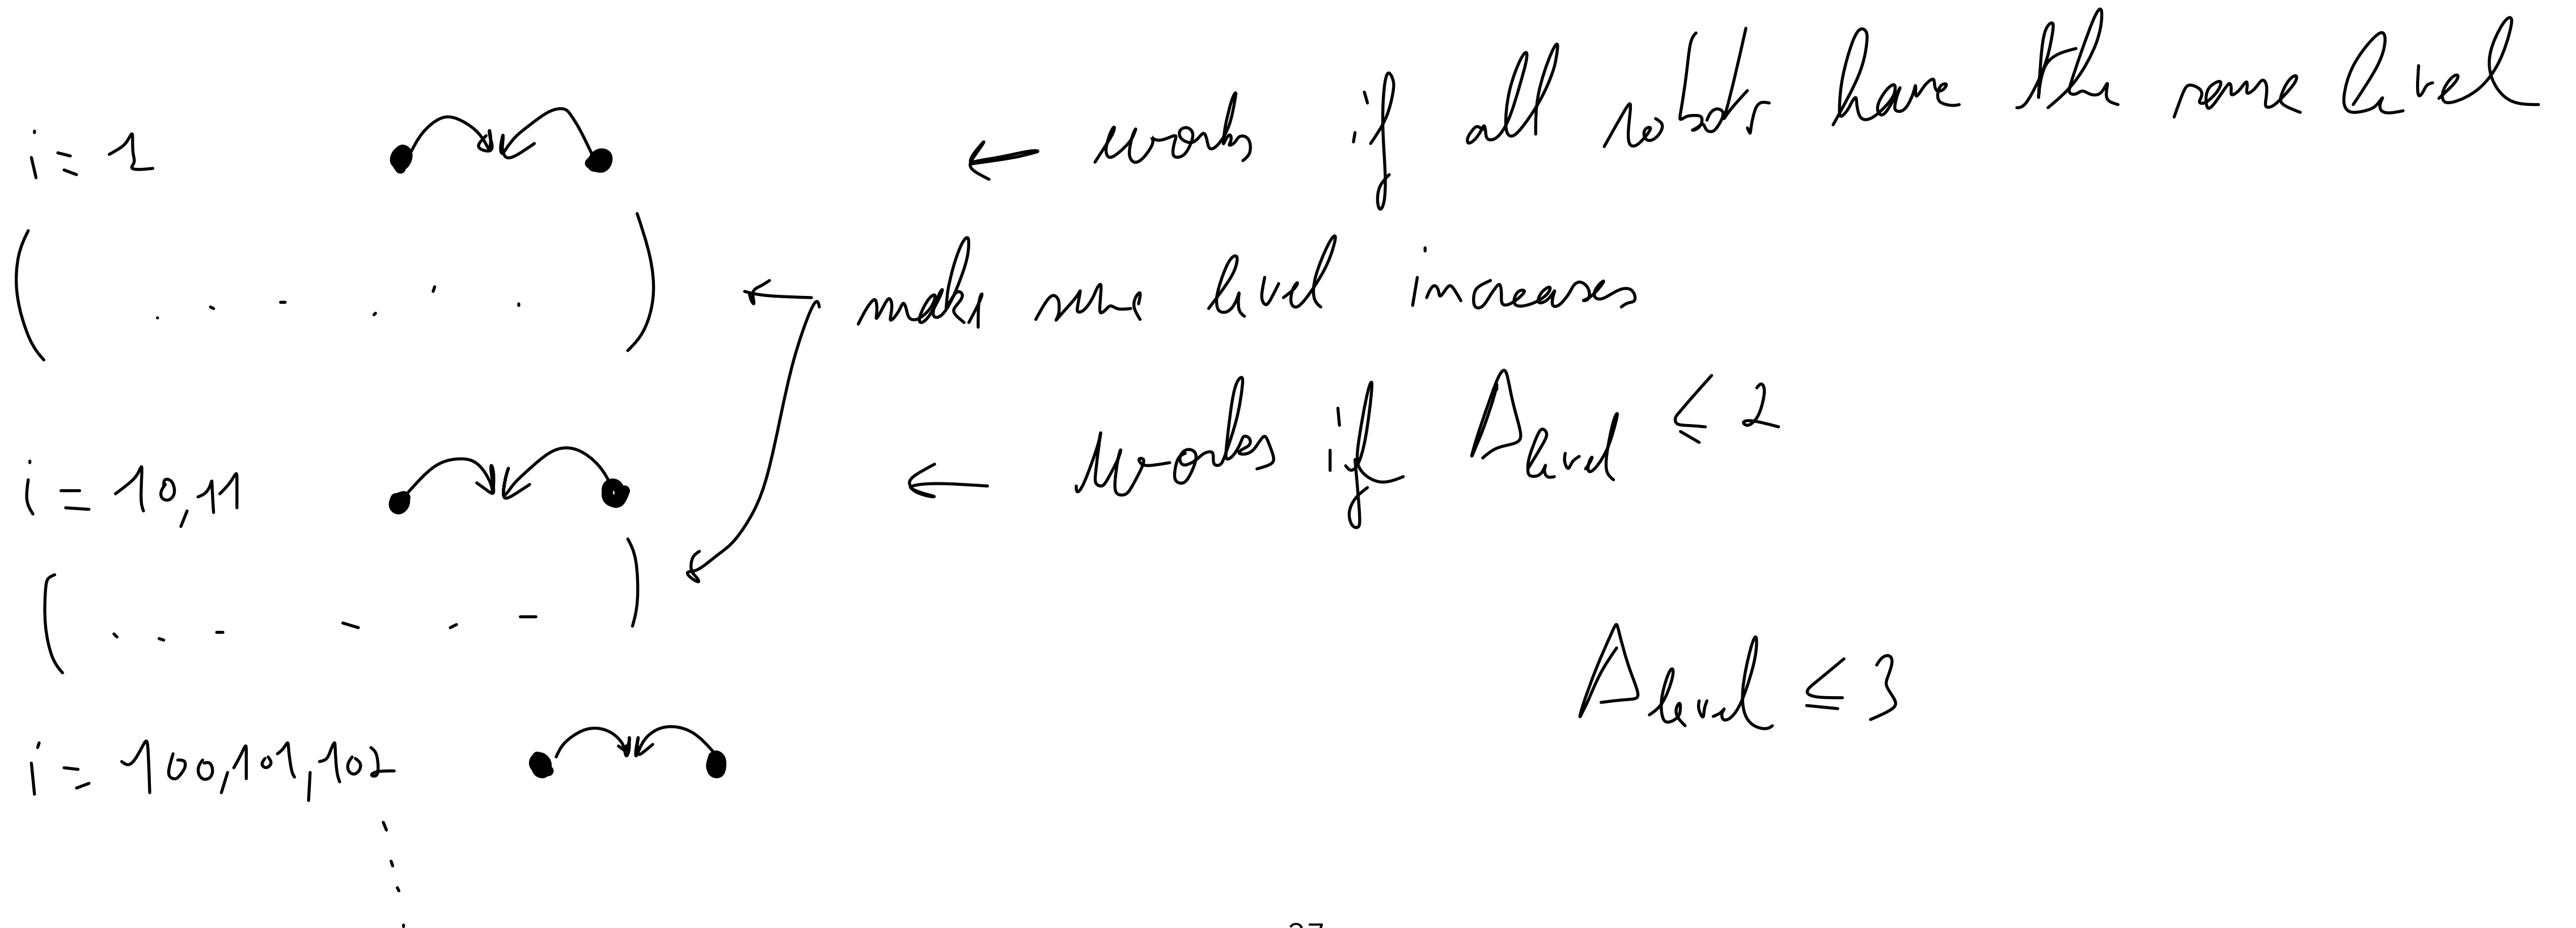 i = 1 ← works if all robots have the same level
( . . - . . . ) ← make sure level increases
i = 10, 11 ← works if Δlevel ≤ 2
( . . - - - - )
Δlevel ≤ 3
i = 100, 101, 102